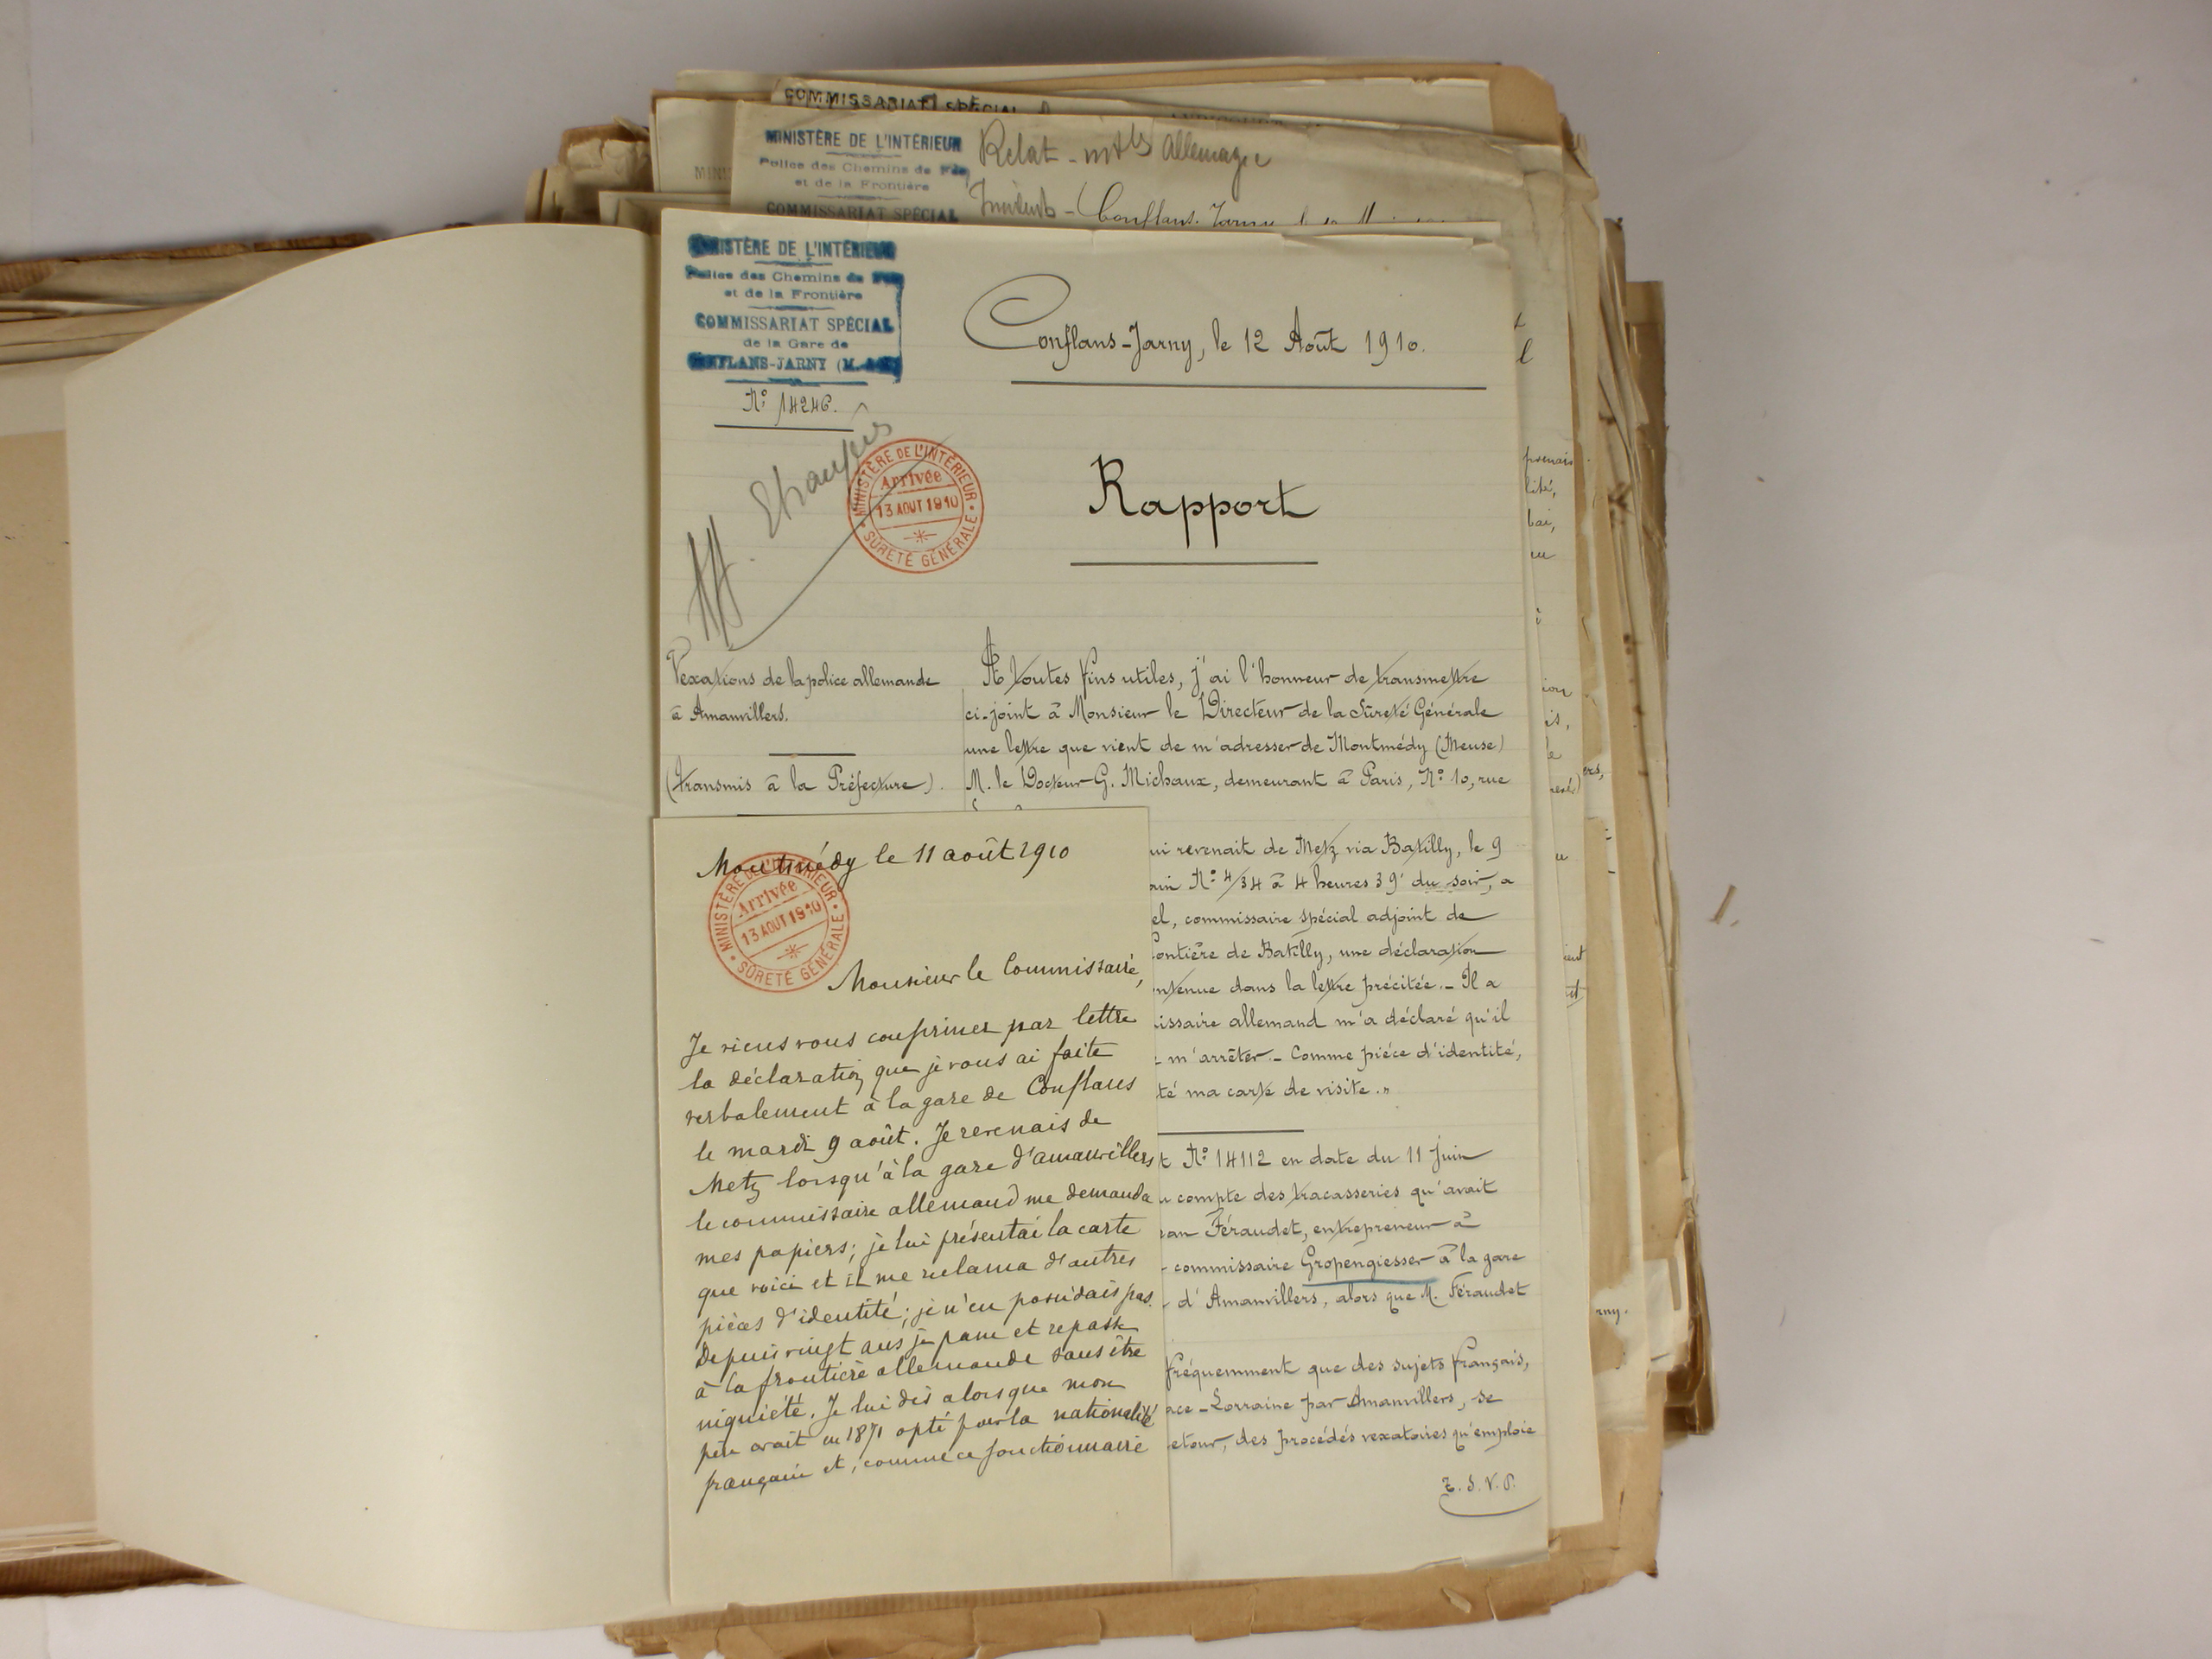 COMMISSARIAT SPÉCIAL
MINISTÈRE DE L'INTÉRIEUR
Police des Chemins de Fer
et de la Frontière
COMMISSARIAT SPÉCIAL
Relat - Allemagne
Incidents - Conflans-Jarny
MINISTÈRE DE L'INTÉRIEUR
Police des Chemins de Fer
et de la Frontière
COMMISSARIAT SPÉCIAL
de la Gare de
CONFLANS-JARNY (M.
N° 14246.
Conflans-Jarny, le 12 Août 1910.
MINISTÈRE DE L'INTÉRIEUR
Arrivée
13 AOUT 1910
SÛRETÉ GÉNÉRALE
Rapport
Vexations de la police allemande
à Amanvillers.
(transmis à la Préfecture).
A toutes fins utiles, j'ai l'honneur de transmettre
ci-joint à Monsieur le Directeur de la Sûreté Générale
une lettre que vient de m'adresser de Montmédy (Meuse)
M. le Docteur G. Michaux, demeurant à Paris, N° 10, rue
ui revenait de Metz via Batilly, le 9
ain N° 4/34 à 4 heures 39' du soir, a
el, commissaire spécial adjoint de
ontière de Batilly, une déclaration
ntenue dans la lettre précitée._ Il a
issaire allemand m'a déclaré qu'il
m'arrêter._ Comme pièce d'identité,
té ma carte de visite."
t N° 14112 en date du 11 Juin
compte des tracasseries qu'avait
ean Féraudet, entrepreneur à
commissaire Gropengiesser à la gare
d'Amanvillers, alors que M. Féraudet
fréquemment que des sujets français,
ace-Lorraine par Amanvillers, se
etour, des procédés vexatoires qu'emploie
T.S.V.P.
Montmédy le 11 août 1910
MINISTÈRE DE L'INTÉRIEUR
Arrivée
13 AOUT 1910
SÛRETÉ GÉNÉRALE
Monsieur le Commissaire,
Je viens vous confirmer par lettre
la déclaration que je vous ai faite
verbalement à la gare de Conflans
le mardi 9 août. Je revenais de
Metz lorsqu'à la gare d'amanvillers
le commissaire allemand me demanda
mes papiers; je lui présentai la carte
que voici et il me réclama d'autres
pièces d'identité; je n'en possédais pas.
Depuis vingt ans je passe et repasse
à la frontière allemande sans être
inquiété. Je lui dis alors que mon
père avait en 1871 opté pour la nationalité
française et, comme ce fonctionnaire